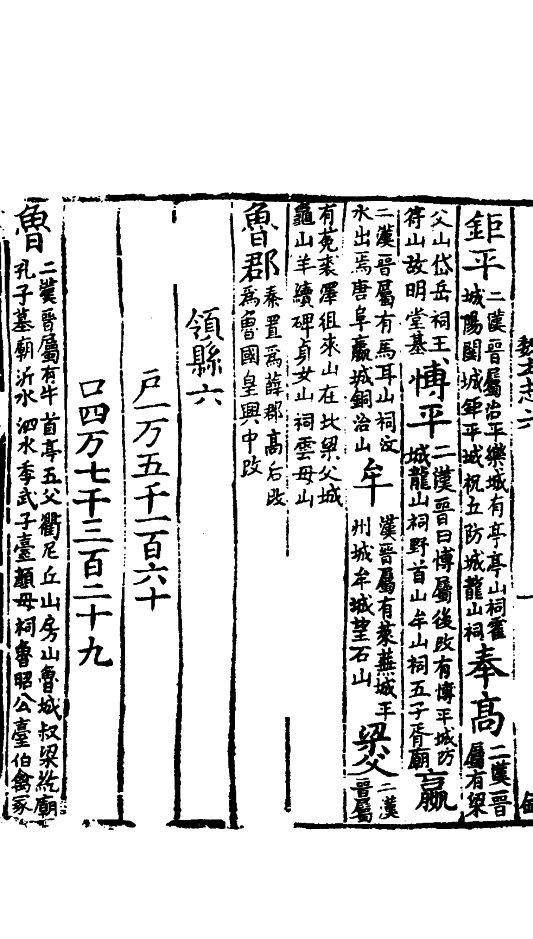 志六
一
鉅平 二漢晉屬治平樂城有亭亭山祠霍城陽關城鉅平城祝丘防城龍山祠 奉高 二漢晉屬有梁
父山岱岳祠王符山故明堂基 博平 二漢晉曰博屬後改有博平城防城龍山祠野首山牟山祠五子胥廟 嬴
二漢晉屬有馬耳山祠汶水出焉唐阜嬴城銅冶山 牟 漢晉屬有萊蕪城平州城牟城望石山 梁父 二漢晉屬
有菟裘澤徂來山在北梁父城龜山羊續碑貞女山祠雲母山
魯郡 秦置爲薛郡高后改爲魯國皇興中改
領縣六
戶一万五千一百六十
口四万七千三百二十九
魯 二漢晉屬有牛首亭五父衢尼丘山房山魯城叔梁紇廟孔子墓廟沂水泗水季武子臺顏母祠魯昭公臺伯禽冢